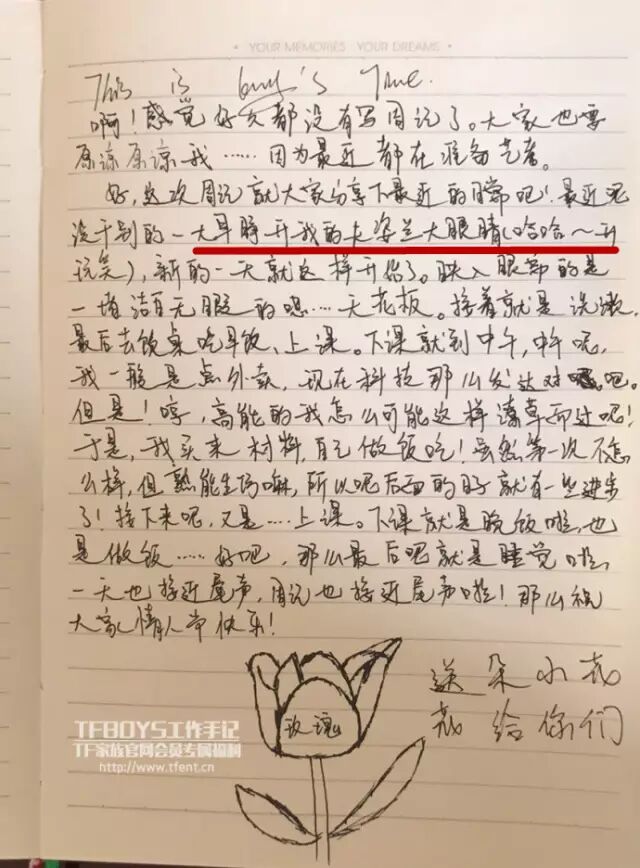 YOUR MEMORIES YOUR DREAMS
This is boy's Time.
啊！感觉好久都没有写周记了。大家也要
原谅原谅我……因为最近都在准备艺考。
好，这次周记就大家分享下最近的日常吧！最近呢
没干别的一大早睁开我的卡姿兰大眼睛(哈哈～开
玩笑)，新的一天就这样开始了。映入眼帘的是
一堵洁白无暇的嗯……天花板。接着就是洗漱，
最后去饭桌吃早饭、上课。下课就到中午，中午呢，
我一般是点外卖，现在科技那么发达对吧。
但是！哼，高能的我怎么可能这样潦草而过呢！
于是，我买来材料，自己做饭吃！虽然第一次不怎
么样，但熟能生巧嘛，所以呢后面的日子就有一些进步
了！接下来呢，又是……上课。下课就是晚饭啦，也
是做饭……好吧，那么最后呢就是睡觉啦，
一天也接近尾声，周记也接近尾声啦！那么祝
大家情人节快乐！
送朵小花
花给你们
玫瑰
TFBOYS工作手记
TF家族官网会员专属福利
http://www.tfent.cn